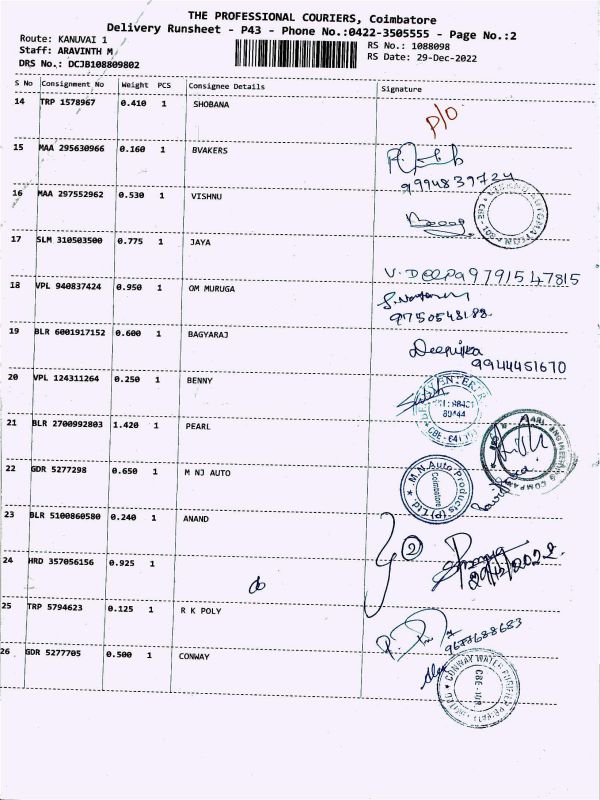 THE PROFESSIONAL COURIERS, Coimbatore
Delivery Runsheet - P43 - Phone No.:0422-3505555 - Page No.:2
Route: KANUVAI 1
Staff: ARAVINTH M
DRS No.: DCJB108809802
RS No.: 1088098
RS Date: 29-Dec-2022
S No Consignment No Weight PCS Consignee Details Signature
14 TRP 1578967 0.410 1 SHOBANA P/O
15 MAA 295630966 0.160 1 BVAKERS
9994839724
16 MAA 297552962 0.530 1 VISHNU
17 SLM 310503500 0.775 1 JAYA
V. Deepa 9791547815
18 VPL 940837424 0.950 1 OM MURUGA
9750548188
19 BLR 6001917152 0.600 1 BAGYARAJ
Deepika
9944451670
20 VPL 124311264 0.250 1 BENNY
21 BLR 2700992803 1.420 1 PEARL
22 GDR 5277298 0.650 1 M NJ AUTO
M.N.Auto Products (P) Ltd.
Coimbatore
23 BLR 5100860580 0.240 1 ANAND
2
24 HRD 357056156 0.925 1
29/12/2022
25 TRP 5794623 0.125 1 R K POLY
26 GDR 5277705 0.500 1 CONWAY
CONWAY WATER PURIFIER PRIVATE LIMITED